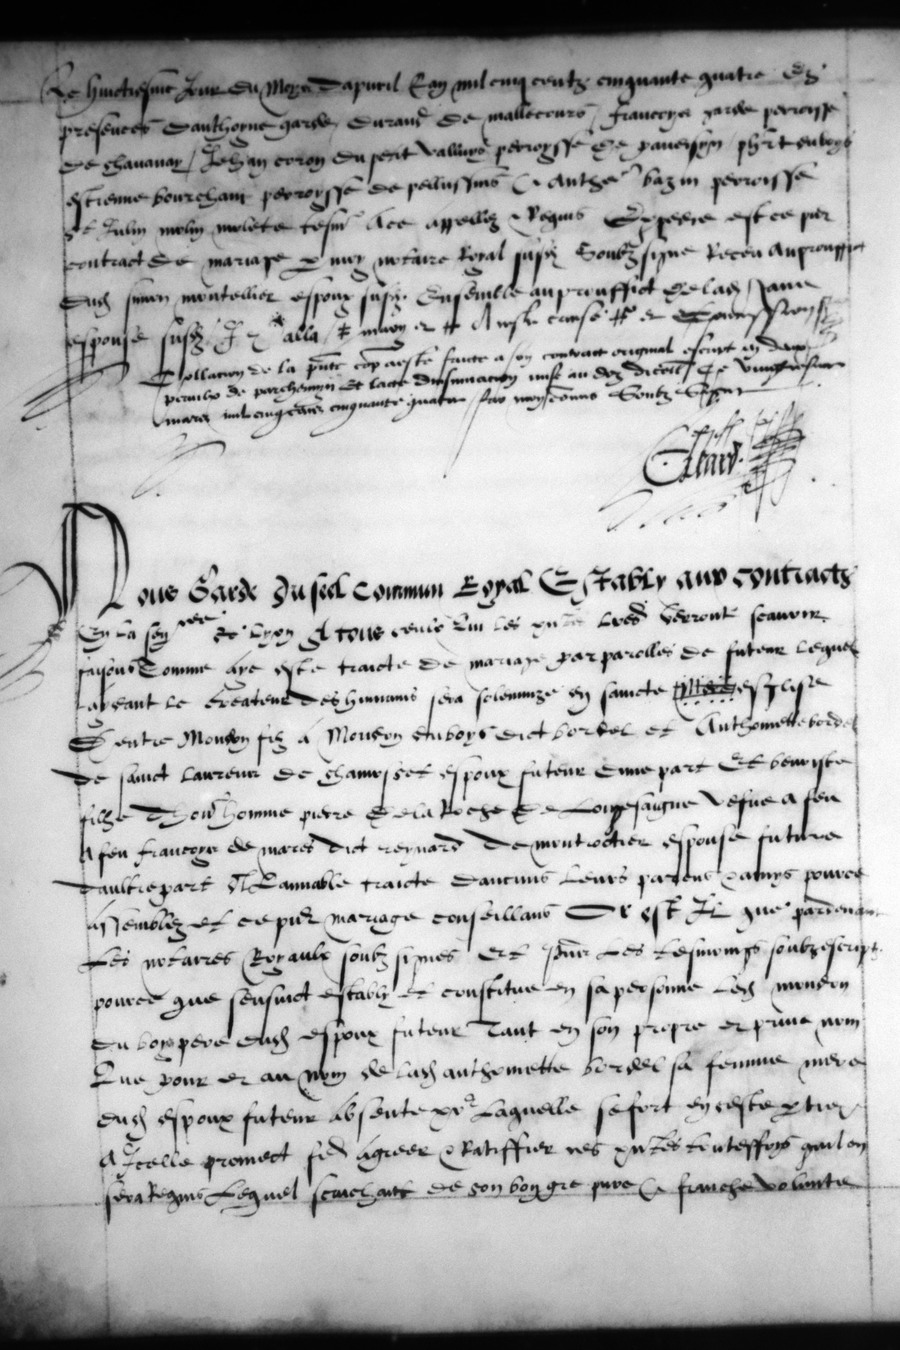 Le huictiesme Jour du Moys dapvril Lan mil cinq centz cinquante quatre Es
presences danthoyne garde durand de mallecours / francoys garde perroysse
de chavanay / Jehan coron du petit vallluys perroysse de pavesyn / phrt enboys
estienne bourchani perroysse de pellussins & Anthe bazin perroisse
st Julin molin molete tesm Ace appellez & Requis Expedie est ce pnt
contract de mariage p moy notaire Royal susd Soubz signe Receu Au prouffict
dud simon montellier espoux susd Ensemble au prouffict de lad Jane
espouse susd
Collation de la pnte cop a esté faicte a son contract original escript en deux
peaulx de parchemyn Et lacte dinsinuation mise au doz dicell Ce vingtiesme
mars mil cinq cens cinquante quatre par moy comis Soubz Signe
Nous Garde du seel Commun Royal Establyz aux contractz
En la sen de Lyon A tous ceulx Qui les pntes lres verront scavoir
faisons Comme aye este traicte de mariage par parolles de futeur lequel
aydant le Createur des humains sera solennize en saincte esglise
Entre Mondon filz a Mondon duboys dict bordel et Anthomette bordel
de sainct laureur de chamosset espoux futeur dune part Et benoiste
fille Dhon homme pierre de la Roche de Longesaigne vefue a feu
A feu francoys de mares dict reynard de montrotier espouse future
daultre part Et Lamiable traicte daucuns leurs parens & amys pource
assemblez et ce pnt mariage conseillans Or est Il que pardevant
Les notaires Royaulx soubz signes Et pnt Les tesmoings soubzescriptz
pource que sensuict estably et constitue en sa personne led mondon
duboys pere dud espoux futeur Tant en son propre et prive nom
Que pour et au nom de lad anthomette bordel sa femme mere
dud espoux futeur absente Laquelle se fort en ceste ptie
A Icelle promect fe agreer & Ratiffier ces pntes touteffoys quil en
sera Requis Lequel saichant de son bon gre pure & franche volunte